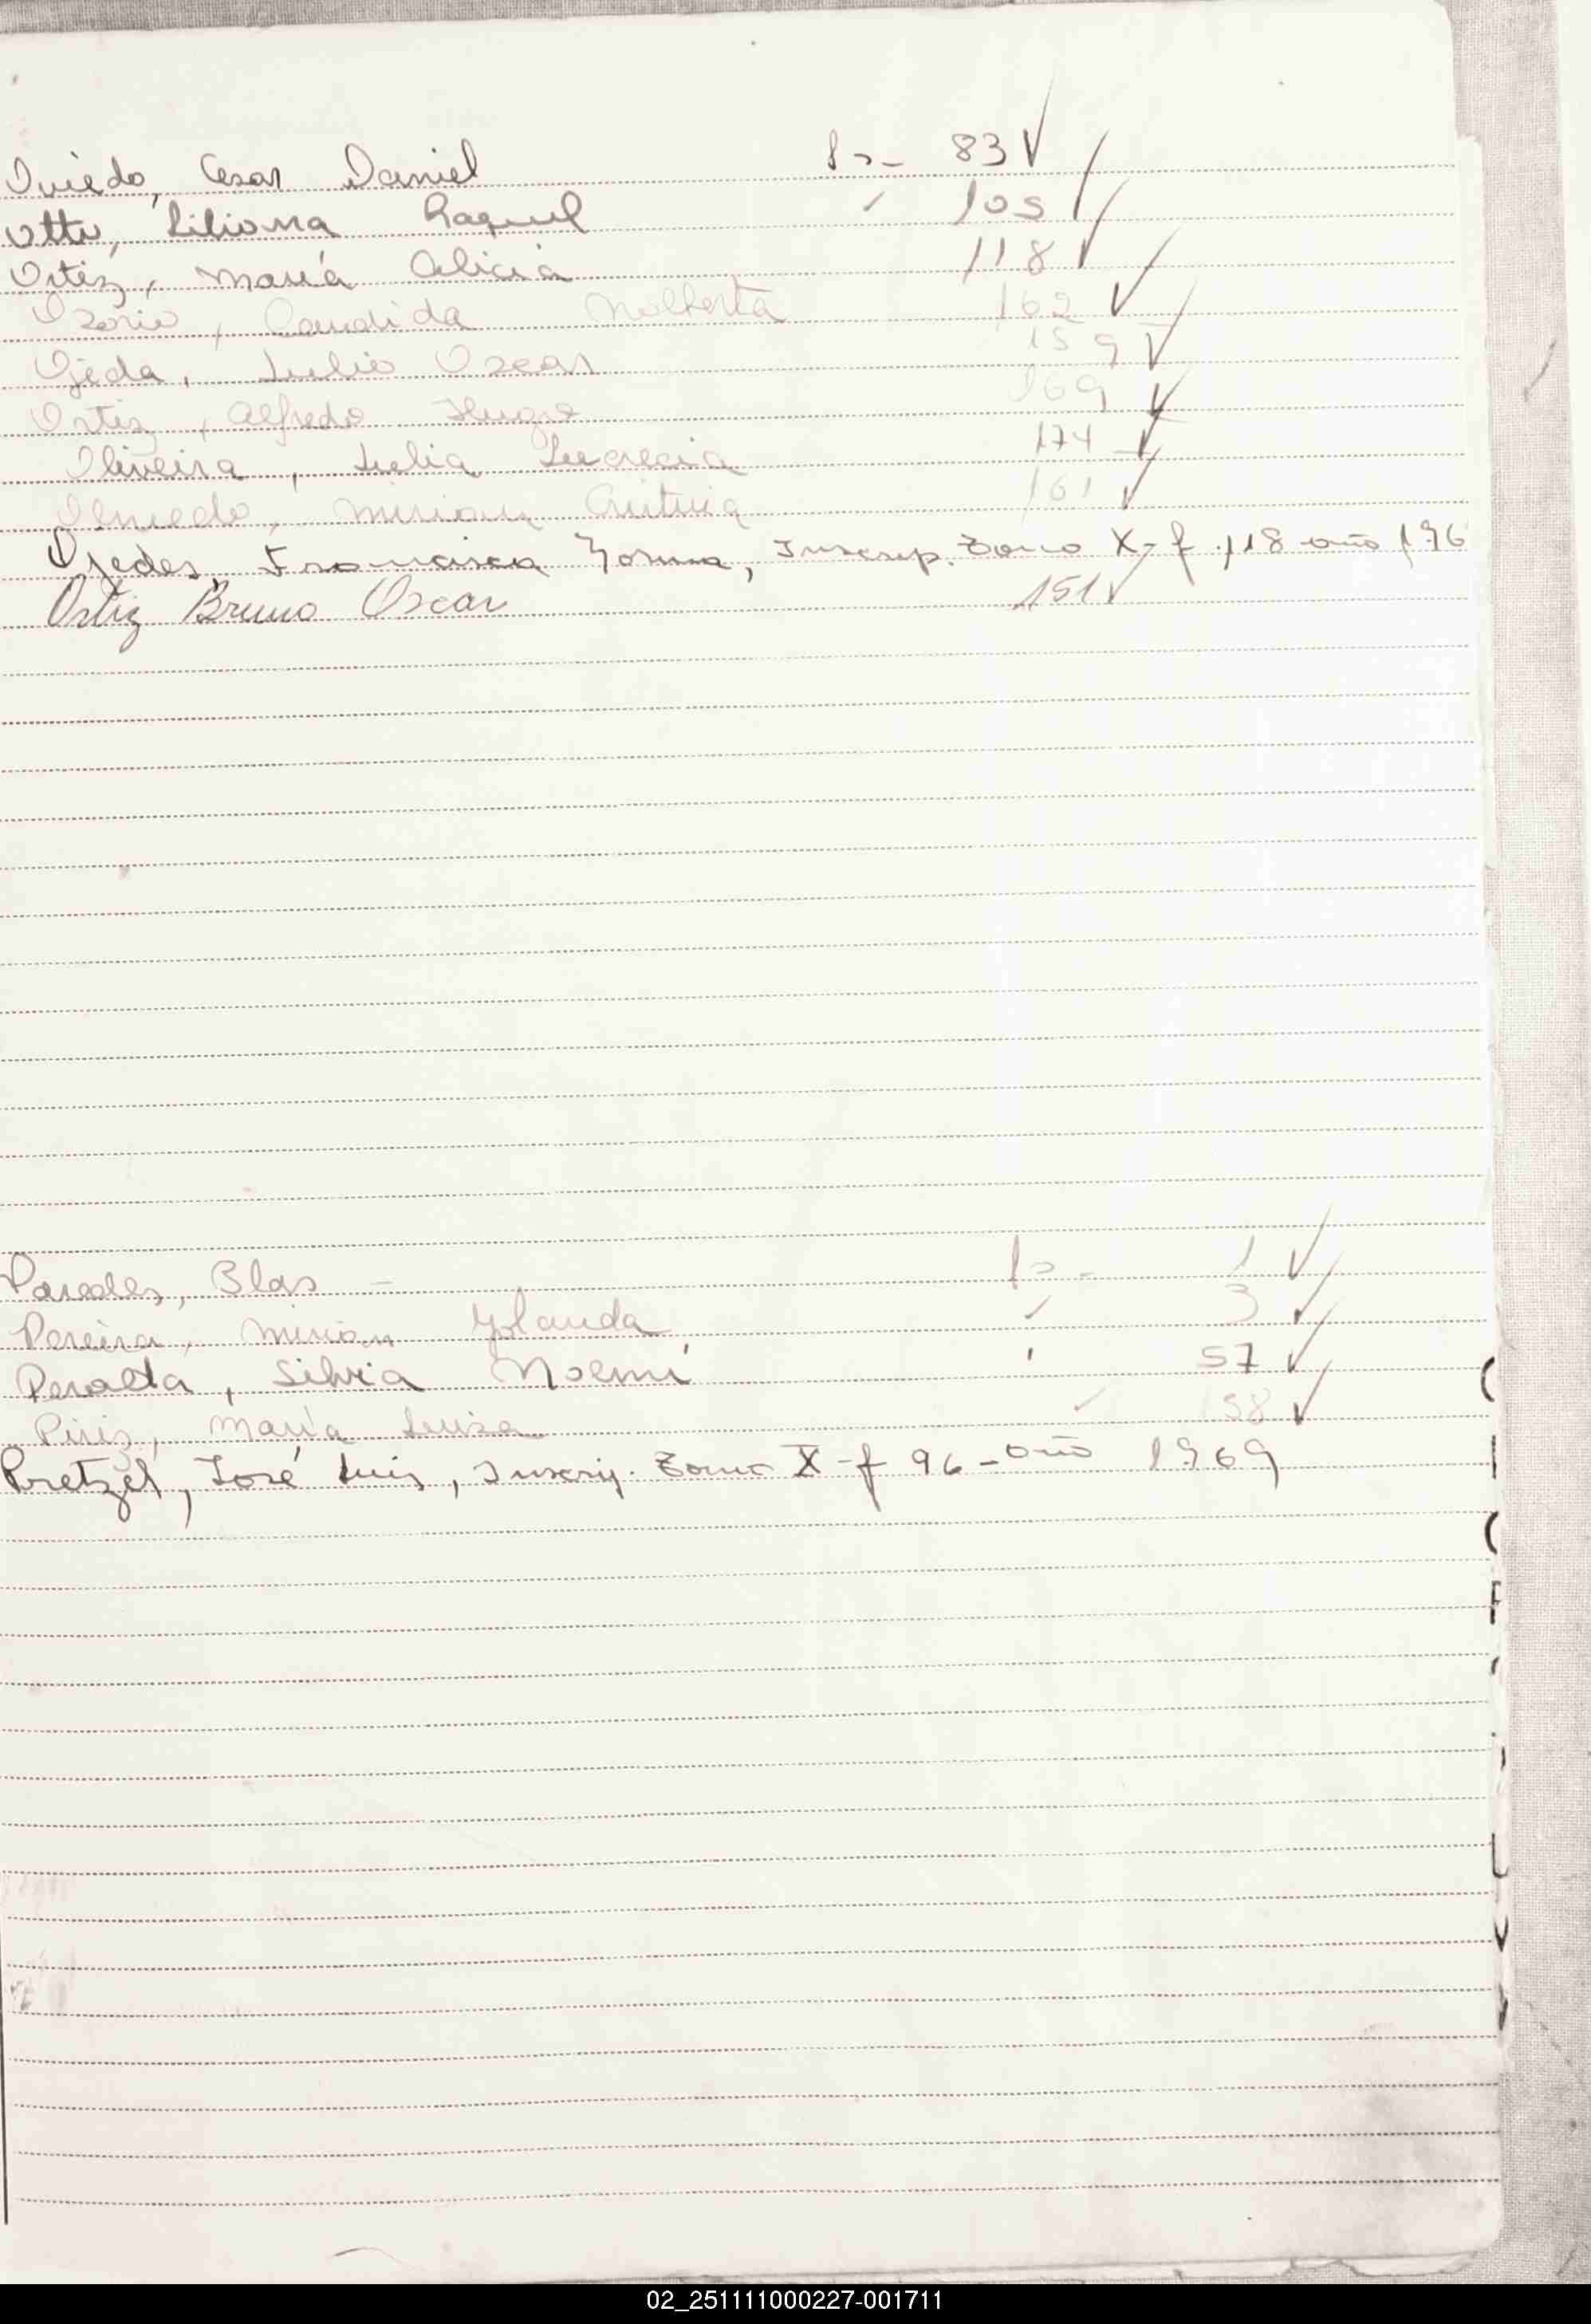 Oviedo, Cesar Daniel fº- 83 ✓
Otto, Liliana Raquel " 105 ✓
Ortíz, María Alicia 118 ✓
Ozorio, Candida 162 ✓
Ojeda, Julio Oscar 159 ✓
Ortiz, Alfredo Hugo 169 ✓
Oliveira, Lucrecia 174 ✓
Olmedo, Mirian Cristina 161 ✓
Ojedes, Francisca Norma, Inscrip. Tomo X-f. 118 año 196
Ortiz Bruno Oscar 151 ✓
Paredes, Blas - fº- 1 ✓
Pereira, Mirian Yolanda " 3 ✓
Peralta, Silvia Noemí ' 57 ✓
Piris, María Luisa 158 ✓
Pretzel, José Luis, Inscrip. Tomo X-f 96-año 1969
02_251111000227-001711